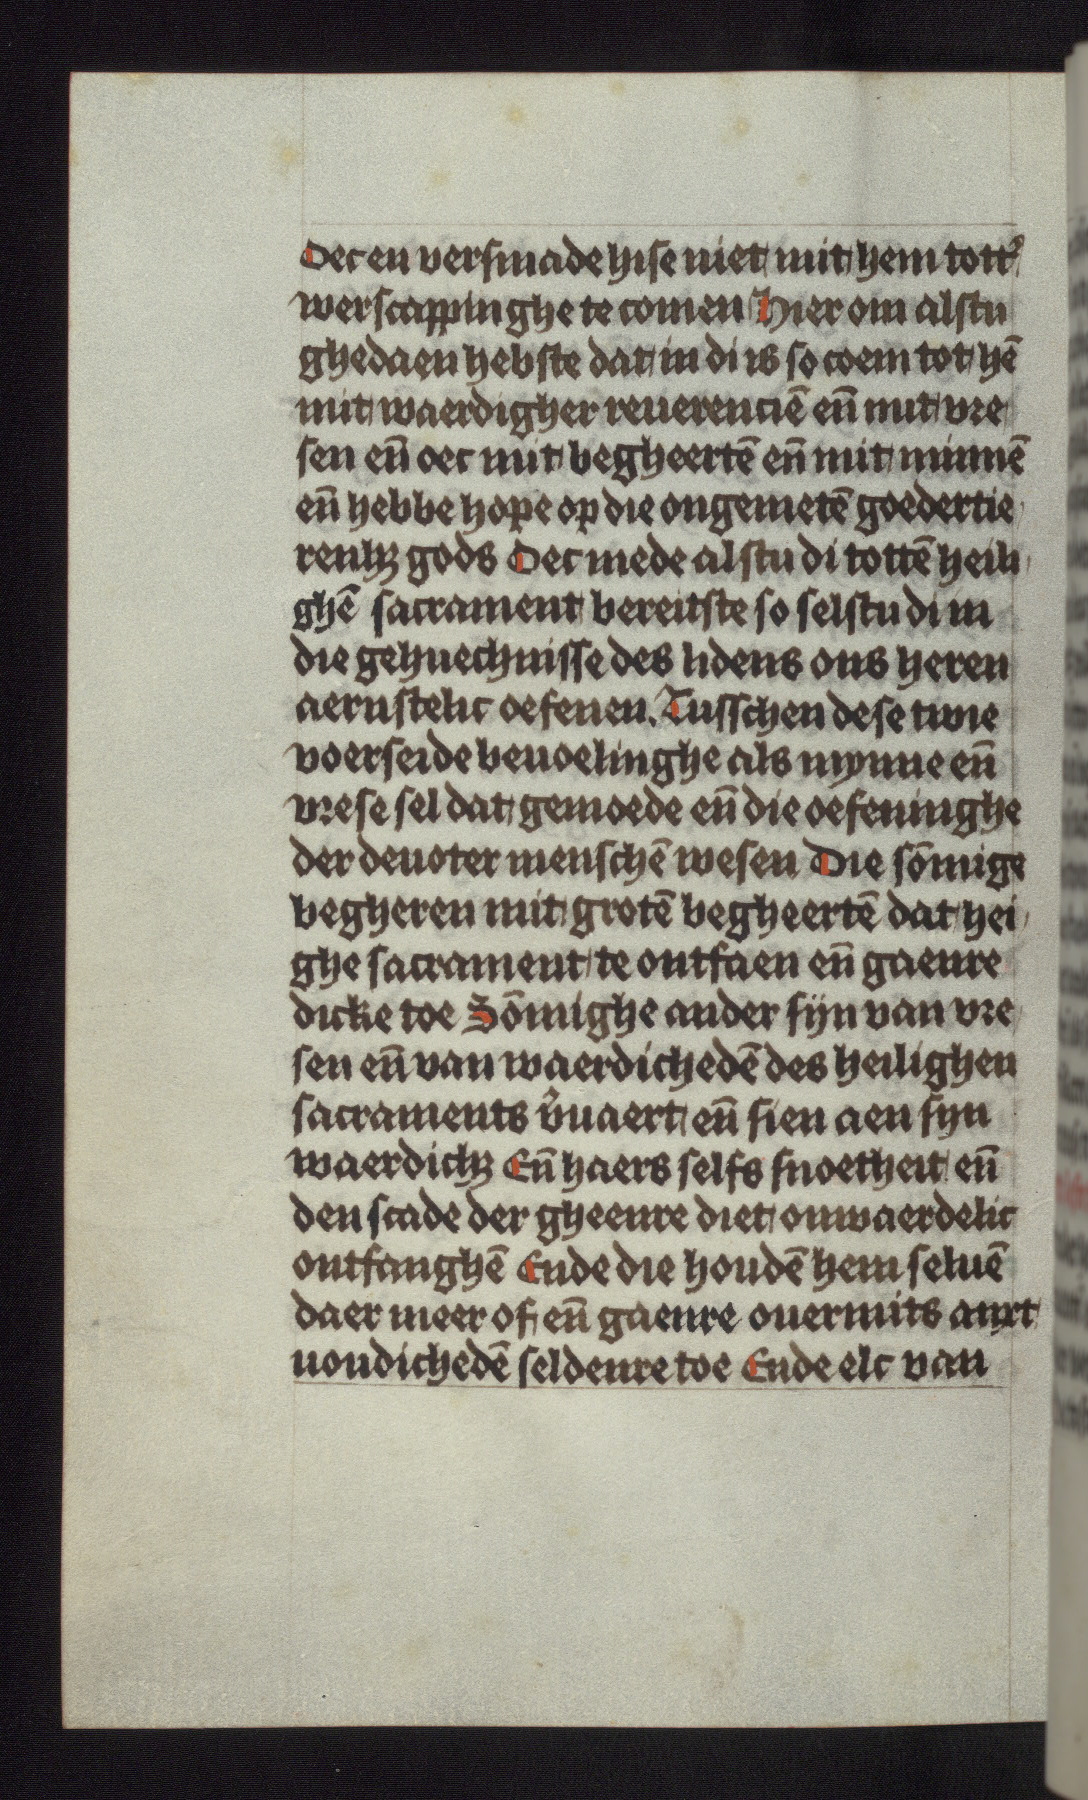 Oec en versmade hise niet mit hem tott᾽
werscappinghe te comen Hier om alstu
ghedaen hebste dat in di is so coem tot hē
mit waerdigher reuerenciē en̄ mit vre
sen en̄ oec mit begheertē en̄ mit minnē
en̄ hebbe hope op die ongemetē goedertie
renhꝫ gods Oec mede alstu di tottē heili
ghē sacrament bereitste so selstu di in
die gehuechnisse des lidens ons heren
aernstelic oefenen. Tusschen dese twie
voerseide beuoelinghe als mynne en̄
vrese sel dat gemoede en̄ die oefeninghe
der deuoter menschē wesen Die sōmige
begheren mit grotē begheertē dat hei
ghe sacrament te ontfaen en̄ gaenre
dicke toe Sōmighe ander sijn van vre
sen en̄ van waerdichedē des heilighen
sacraments v̉uaert en̄ sien aen sijn
waerdichꝫ En̄ haers selfs snoetheit en̄
den scade der gheenre diet onwaerdelic
ontfanghē Ende die houdē hem seluē
daer meer of en̄ gaenre ouermits anxt
uoudichedē seldenre toe Ende elc van